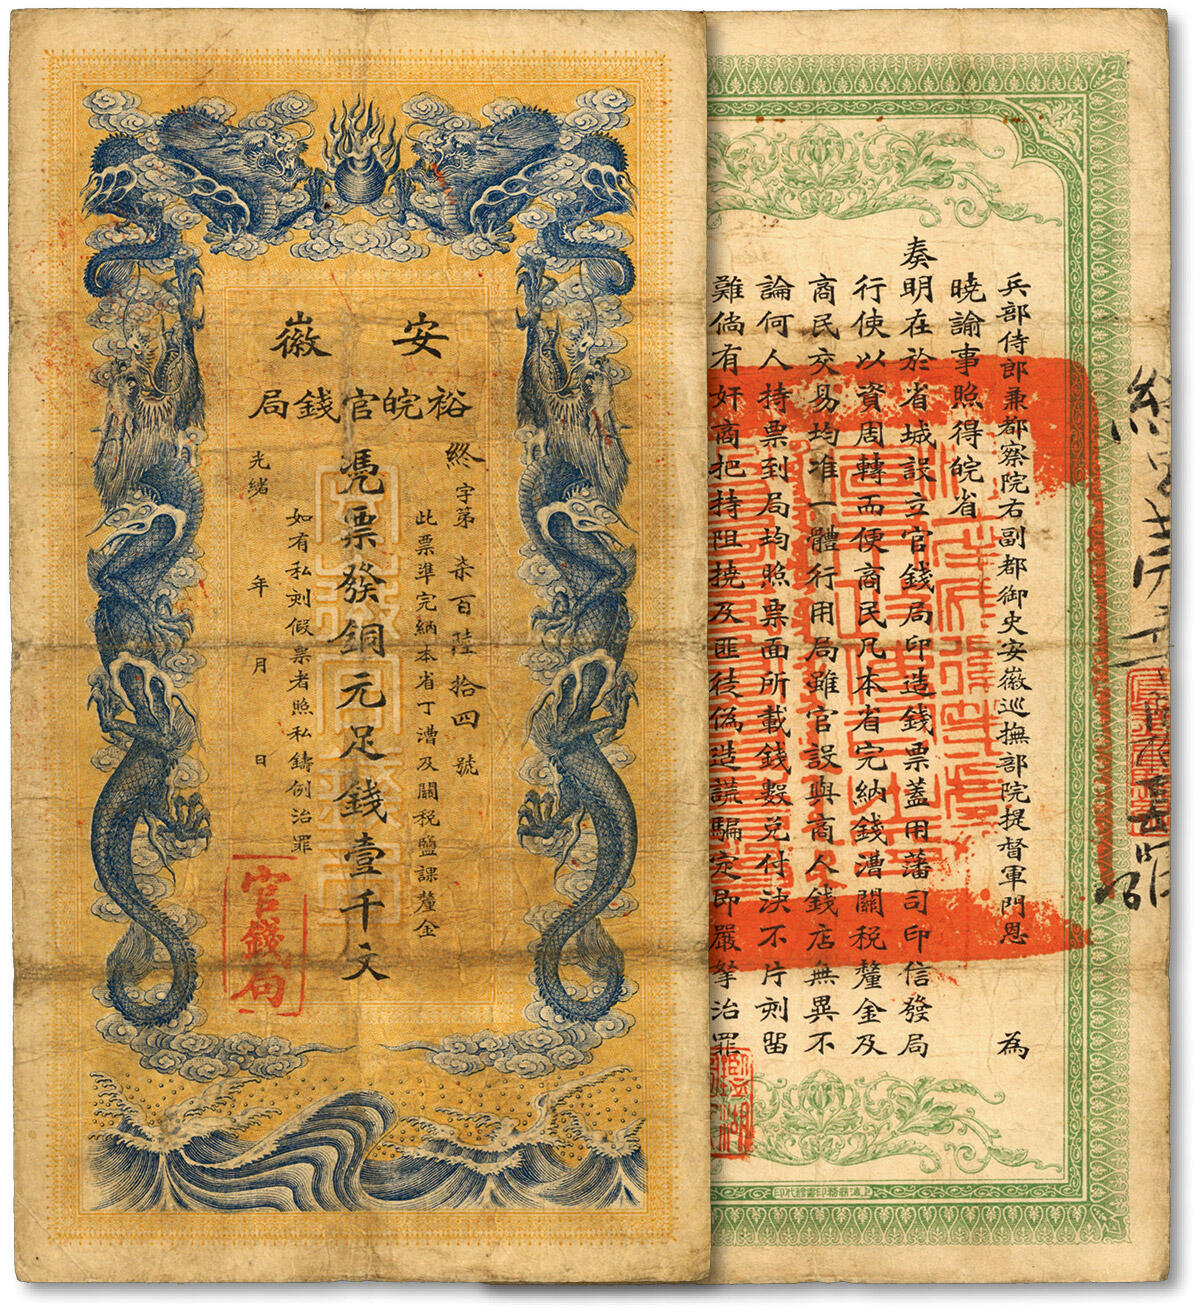 安徽
裕皖官錢局
終字第柒百陸拾四號
此票準完納本省丁漕及關稅鹽課釐金
憑票發銅元足錢壹千文
如有私刻假票者照私鑄例治罪
光緒 年 月 日
官錢局
兵部侍郎兼都察院右副都御史安徽巡撫部院提督軍門恩 為
曉諭事照得皖省
奏明在於省城設立官錢局印造錢票蓋用藩司印信發局
行使以資周轉而便商民凡本省完納錢漕關稅釐金及
商民交易均准一體行用局雖官設與商人錢店無異不
論何人持票到局均照票面所載錢數兌付決不片刻留
難倘有奸商把持阻撓及匪徒偽造謊騙定即嚴拏治罪